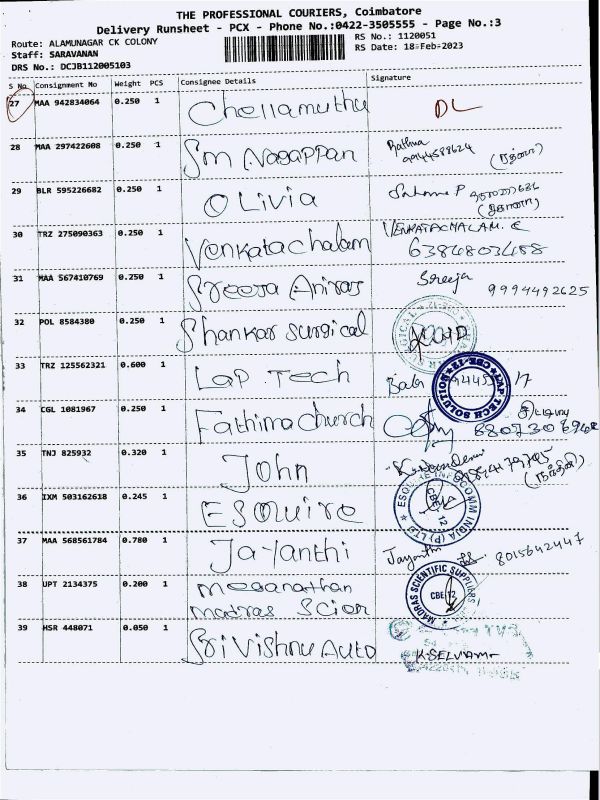 THE PROFESSIONAL COURIERS, Coimbatore
Delivery Runsheet - PCX - Phone No.:0422-3505555 - Page No.:3
Route: ALAMUNAGAR CK COLONY
RS No.: 1120051
Staff: SARAVANAN
RS Date: 18-Feb-2023
DRS No.: DCJB112005103
S No. Consignment No Weight PCS Consignee Details Signature
27 MAA 942834064 0.250 1 Chellamuthu DL
28 MAA 297422608 0.250 1 Sm Nagappan Rathna
29 BLR 595226682 0.250 1 OLivia
30 TRZ 275090363 0.250 1 Venkatachalam VENKATACHALAM. C
31 MAA 567410769 0.250 1 Sreeja 9994492625
32 POL 8584380 0.250 1 Shankar Surgical
33 TRZ 125562321 0.600 1 Lap Tech LAP TECH SOLUTION CBE-12
34 CGL 1081967 0.250 1 Fathima church
35 TNJ 825932 0.320 1 John
36 IXM 503162618 0.245 1 Esquire CBE 12
37 MAA 568561784 0.780 1 Jayanthi Jayanthi 8015642447
38 UPT 2134375 0.200 1 meganathan
madras Scien MADRAS SCIENTIFIC SUPPLIERS CBE-12
39 HSR 448071 0.050 1 Sri Vishnu Auto K.SELVAM